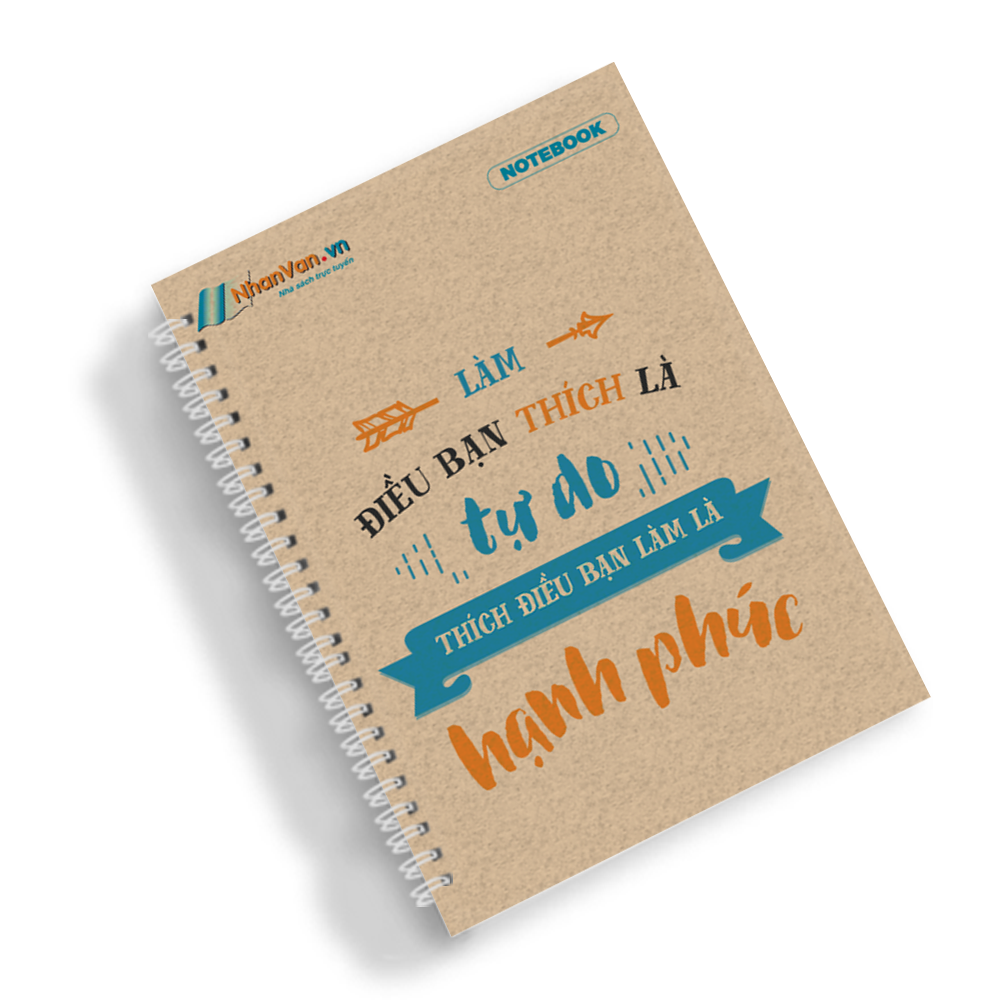 NOTEBOOK
NhanVan.vn
Nhà sách trực tuyến
LÀM
ĐIỀU BẠN THÍCH LÀ
tự do
THÍCH ĐIỀU BẠN LÀM LÀ
hạnh phúc